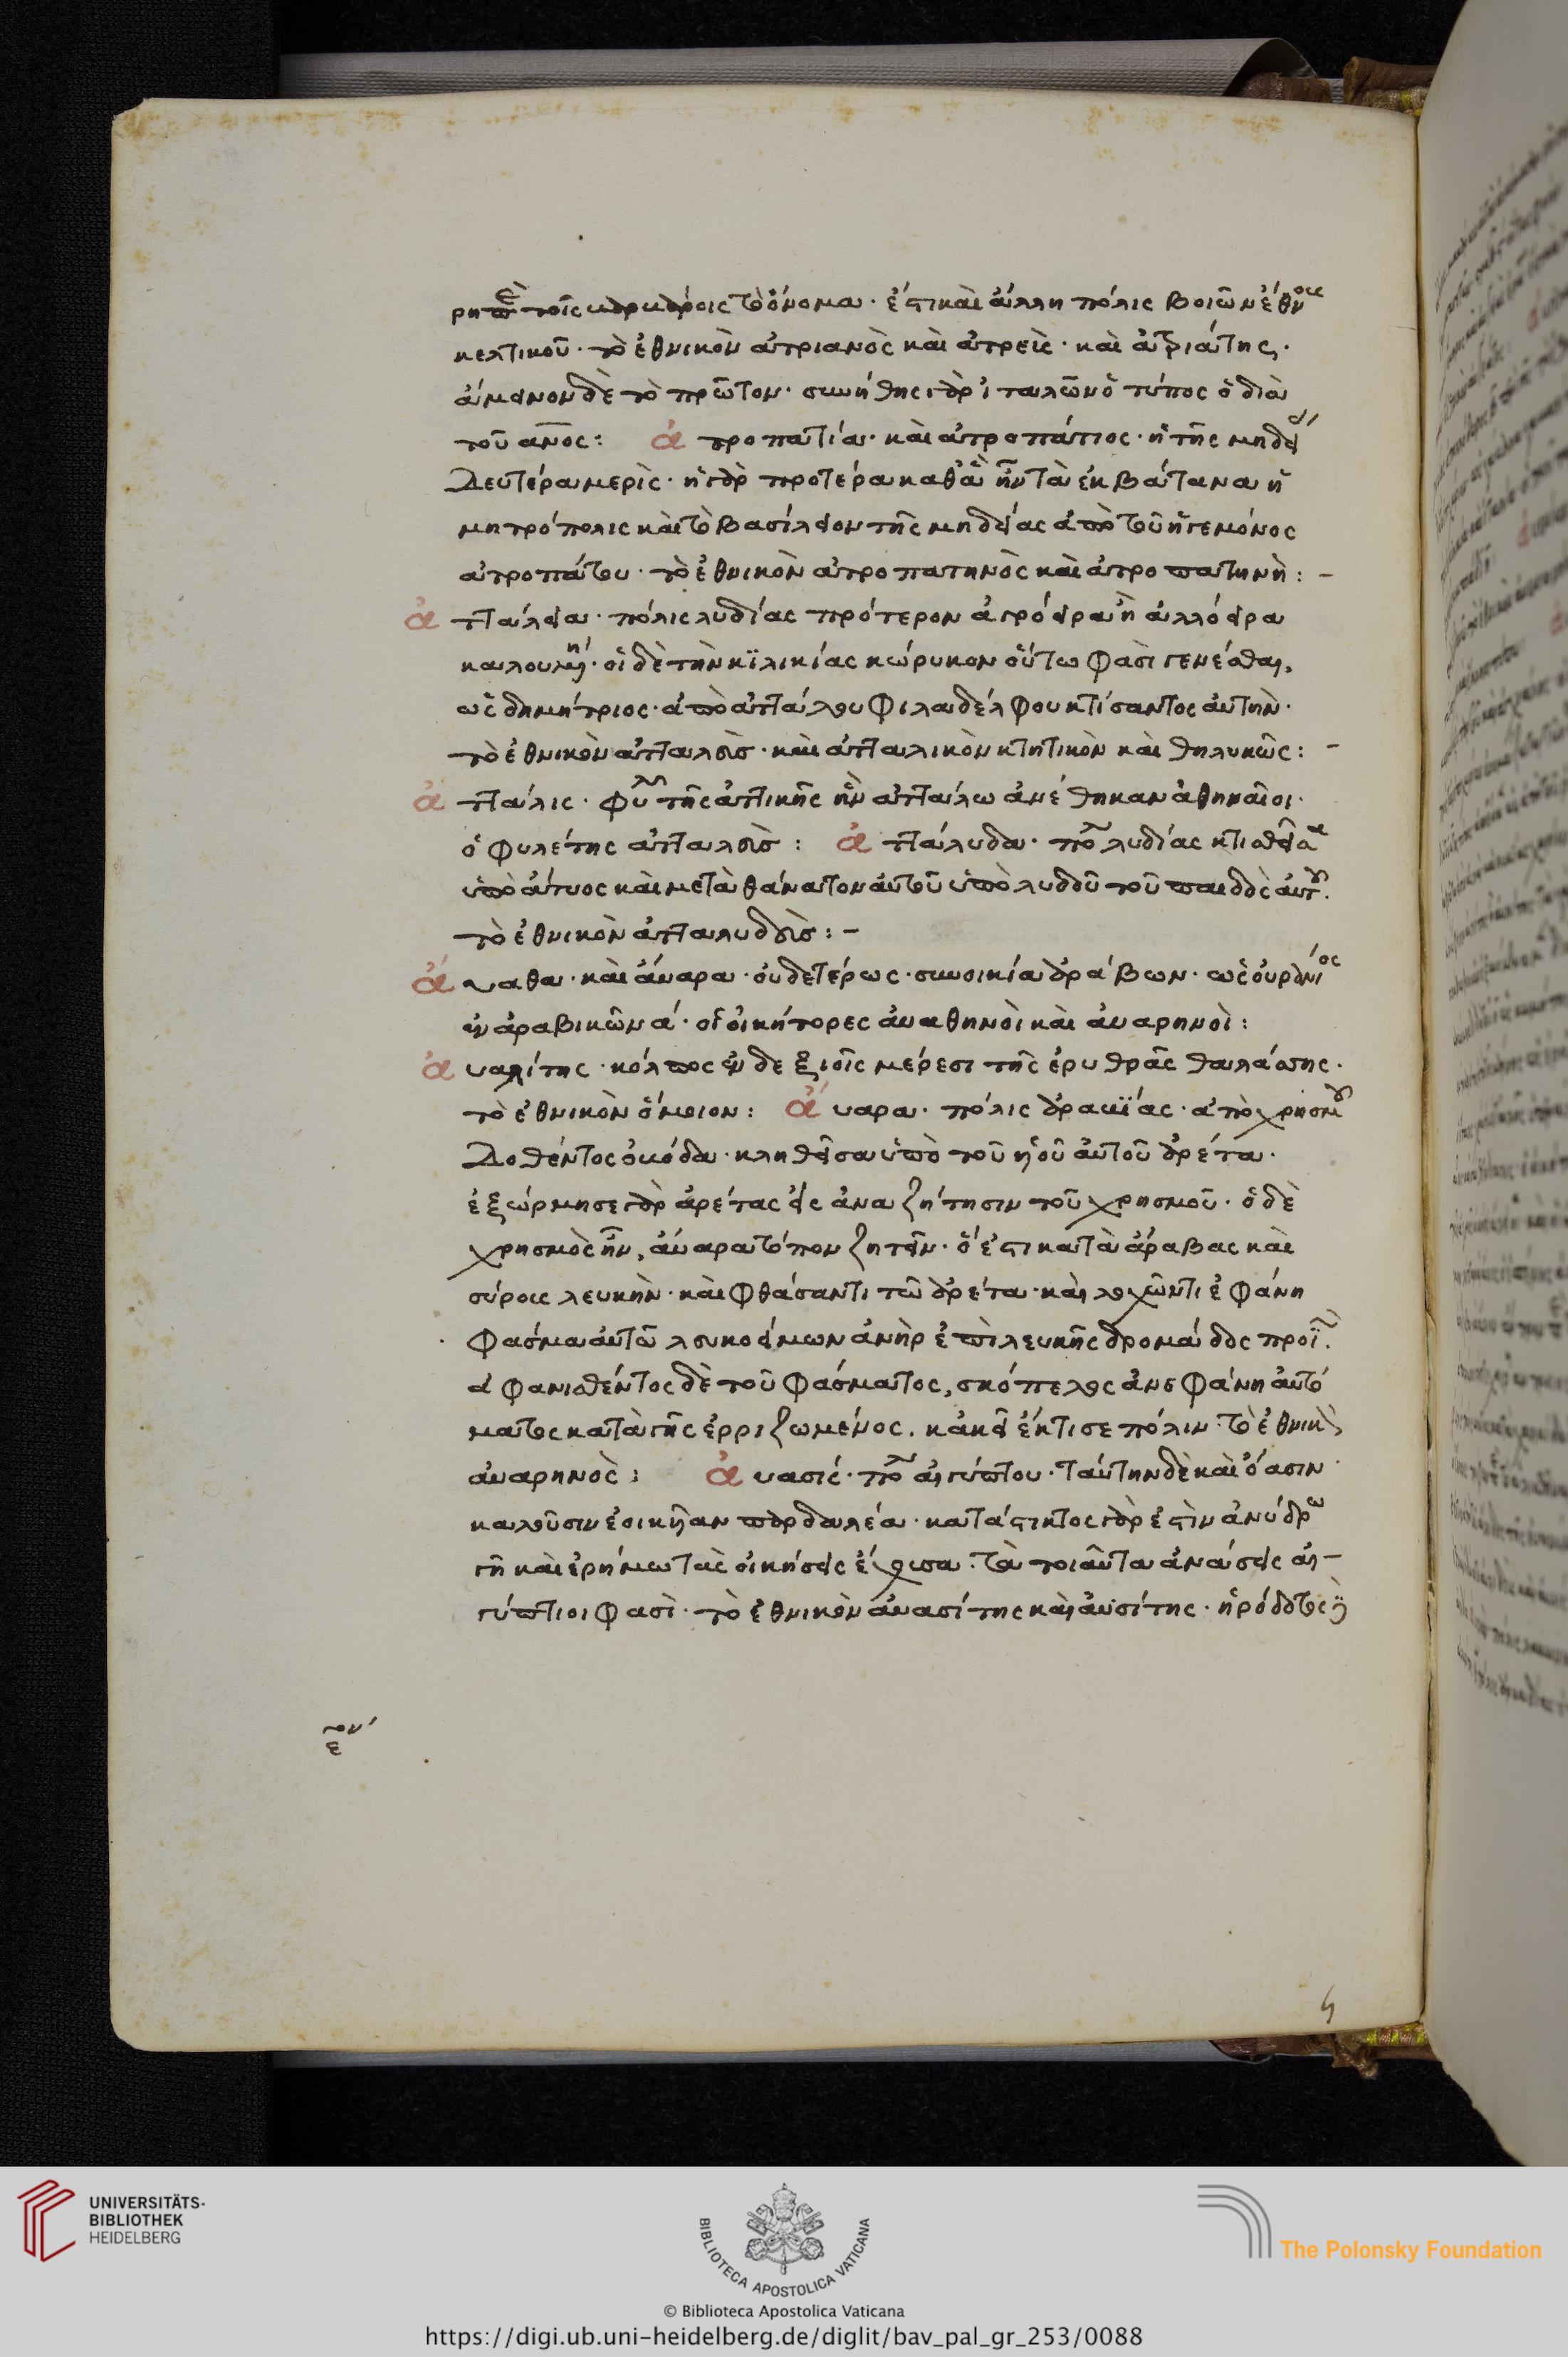 ρηται τοῖς κυρκυροις τὸ ὄνομα· ἔστι καὶ ἄλλη πόλις βοιῶν ἔθνους
κελτικοῦ· τὸ ἐθνικὸν ἀτριανὸς καὶ ἀτρεὺς· καὶ ἀτριάτης·
ἄμεινον δὲ τὸ πρῶτον· συνήθης γὰρ ἰταλῶν ὁ τύπος ὁ διὰ
τοῦ ανος: ἀτροπατία· καὶ ἀτροπάτιος· ἡ τῆς μηδεί
δευτέρα μερὶς· ἡ γὰρ προτέρα καθ' ἃ ἦν τὰ ἐκβάτανα ἡ
μητρόπολις καὶ τὸ βασίλειον τῆς μηδείας ἀπὸ τοῦ ἡγεμόνος
ἀτροπάτου· τὸ ἐθνικὸν ἀτροπατηνὸς καὶ ἀτροπατηνὴ: –
ἀττάλεια· πόλις λυδίας πρότερον ἀγρόειρα ἢ ἀλλόειρα
καλουμένη· οἱ δὲ τὴν κϊλικίας κώρυκον οὕτω φασὶ γενέσθαι,
ὡς δημήτριος· ἀπὸ ἀττάλου φιλαδέλφου κτίσαντος αὐτὴν·
τὸ ἐθνικὸν ἀτταλεὺς· καὶ ἀτταλικὸν κτητικὸν καὶ θηλυκῶς: –
ἀτταλὶς· φυλὴ τῆς ἀττικῆς ἣν ἀττάλω ἀνέθηκαν ἀθηναῖοι·
ὁ φυλέτης ἀτταλεὺς: ἀττάλυδα· πόλις λυδίας κτισθεῖσα
ὑπὸ ἄτυος καὶ μετὰ θάνατον αὐτοῦ ὑπὸ λυδοῦ τοῦ παιδὸς αὐτοῦ.
τὸ ἐθνικὸν ἀτταλυδεὺς: –
ἄυαθα· καὶ ἄυαρα· οὐδετέρως· συνοικία ἀράβων· ὡς οὐράνιος
ἐν ἀραβικῶν α΄· οἱ οἰκήτορες ἀυαθηνοὶ καὶ ἀυαρηνοὶ:
ἀυαλίτης· κόλπος ἐν δεξιοῖς μέρεσι τῆς ἐρυθρᾶς θαλάσσης·
τὸ ἐθνικὸν ὅμοιον: ἄυαρα· πόλις ἀραβίας· ἀπὸ χρησμοῦ
δοθέντος ὀβόδα· κληθεῖσα ὑπὸ τοῦ υἱοῦ αὐτοῦ ἀρέτα·
ἐξώρμησε γὰρ ἀρέτας εἰς ἀναζήτησιν τοῦ χρησμοῦ· ὁ δὲ
χρησμὸς ἦν, ἄυαρα τόπον ζητεῖν· ὅ ἐστι κατὰ ἄραβας καὶ
σύρους λευκὴν· καὶ φθάσαντι τῶ ἀρέτα· καὶ λοχῶντι ἐφάνη
φάσμα αὐτῶ λευκοείμων ἀνὴρ ἐπὶ λευκῆς δρομάδος προϊ.
ἀφανισθέντος δὲ τοῦ φάσματος, σκόπελος ἀνεφάνη αὐτό
ματος κατὰ γῆς ἐρριζωμένος. κἀκεῖ ἔκτισε πόλιν· τὸ ἐθνικὸν
ἀυαρηνὸς: ἀυασίς· πόλις αἰγύπτου· ταύτην δὲ καὶ ὄασιν·
καλοῦσιν ἐοικῆαν παρδαλέα· κατάστικτος γάρ ἐστιν ἀνύδρω
γῆ καὶ ἐρήμω τὰς οἰκήσεις ἔχουσα· τὰ τοιαῦτα ἀυάσεις αἰ–
γύπτιοι φασὶ· τὸ ἐθνικὸν ἀυασίτης καὶ ἀυσίτης· ἡρόδοτος
4
UNIVERSITÄTS-
BIBLIOTHEK
HEIDELBERG
BIBLIOTECA APOSTOLICA VATICANA
The Polonsky Foundation
© Biblioteca Apostolica Vaticana
https://digi.ub.uni-heidelberg.de/diglit/bav_pal_gr_253/0088